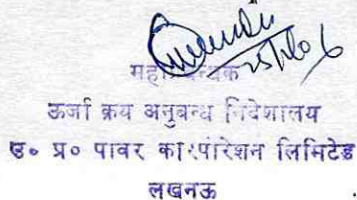 25/10/06
महाप्रबन्धक
ऊर्जा क्रय अनुबन्ध निदेशालय
उ० प्र० पावर कारपोरेशन लिमिटेड
लखनऊ